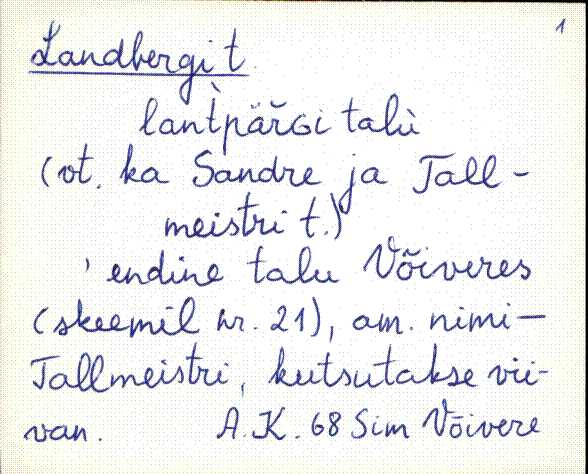 1
Landbergi t.
lantpärgi talù
(vt. ka Sandre ja Tall-
meistri t.)
' endine talu Võiveres
(skeemil nr. 21), am. nimi—
Tallmeistri, kutsutakse vii-
van. A. K. 68 Sim Võivere